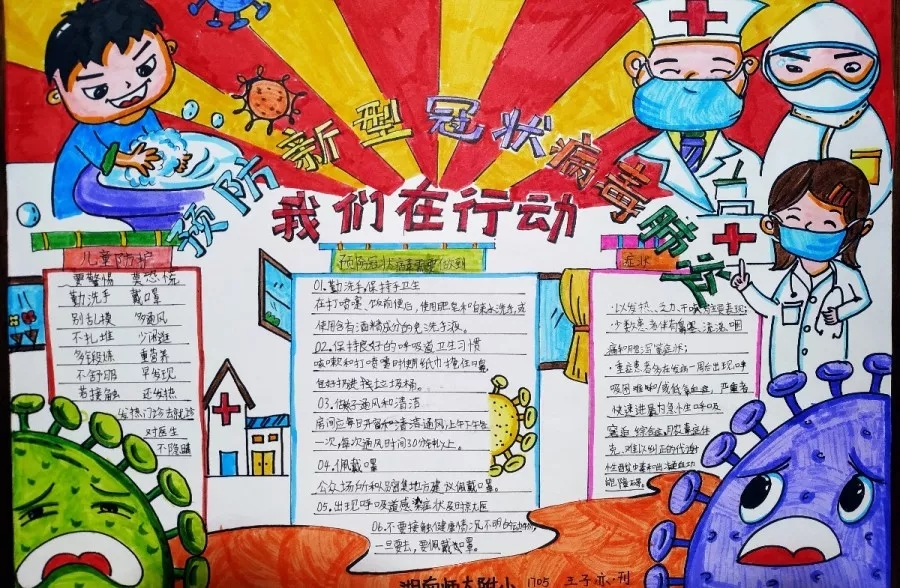 预防新型冠状病毒肺炎
我们在行动
儿童防护
要警惕 莫恐慌
勤洗手 戴口罩
别乱摸 多通风
不扎堆 少闲逛
多锻炼 重营养
不舒服 早发现
若接触 还发热
发热门诊去就诊
对医生
不隐瞒
预防冠状病毒需要做到
01.勤洗手,保持手卫生
在打喷嚏、饭前便后,使用肥皂和自来水洗手,或
使用含有酒精成分的免洗手液。
02.保持良好的呼吸道卫生习惯
咳嗽和打喷嚏时使用纸巾掩住口鼻
03.保持通风和清洁
房间应每日开窗和清洁通风,上午下午各
一次,每次通风时间30分钟以上。
04.佩戴口罩
公众场所和人员密集地方建议佩戴口罩。
05.出现呼吸道感染症状及时就医
06.不要接触健康情况不明的动物,
一旦要去,要佩戴口罩。
症状
·以发热、乏力、干咳为主要表现;
·少数患者伴有鼻塞、流涕、咽
痛和腹泻等症状;
·重症患者多在发病一周后出现呼
吸困难和/或低氧血症,严重者
快速进展为急性呼吸
窘迫综合征、脓毒症休
克、难以纠正的代谢
性酸中毒和出凝血功
能障碍。
湖南师大附小 1705 王子亦·刊